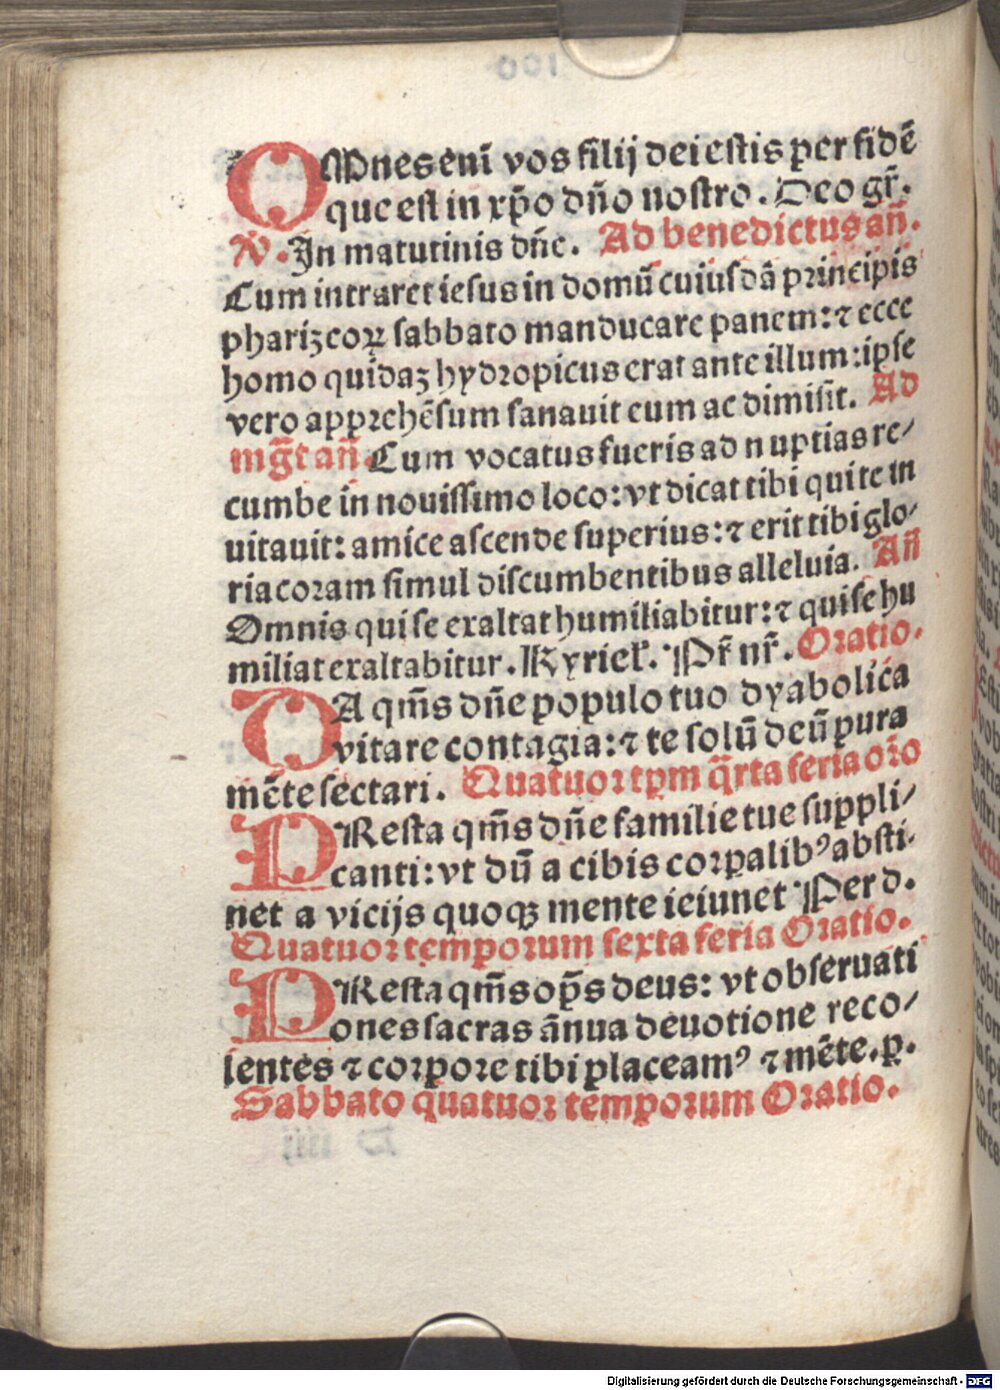 OMnes eni̅ vos filij dei estis per fide̅
que est in xp̅o dn̅o nostro. Deo gr̅.
V̷. In matutinis dn̅e. Ad benedictus an̅.
Cum intraret iesus in domu̅ cuiusda̅ principis
pharizeoꝝ sabbato manducare panem: ⁊ ecce
homo quidaz hydropicus erat ante illum: ipse
vero apprehe̅sum sanauit eum ac dimisit. Ad
mg̅t an̅. Cum vocatus fueris ad nuptias re/
cumbe in nouissimo loco: vt dicat tibi qui te in
uitauit: amice ascende superius: ⁊ erit tibi glo/
ria coram simul discumbentibus alleluia. An̅
Omnis qui se exaltat humiliabitur: ⁊ qui se hu
miliat exaltabitur. Kyriel̅. Pr̅ nr̅. Oratio.
DA qm̅s dn̅e populo tuo dyabolica
vitare contagia: ⁊ te solu̅ deu̅ pura
me̅te sectari. Quatuor tpm q̅rta feria oro̅
PResta qm̅s dn̅e familie tue suppli/
canti: vt du̅ a cibis corpalibꝰ absti-
net a vicijs quoqꝫ mente ieiunet Per d.
Quatuor temporum sexta feria Oratio.
PResta qm̅s op̅s deus: vt obseruati
ones sacras a̅nua deuotione reco/
lentes ⁊ corpore tibi placeamꝰ ⁊ me̅te. p.
Sabbato quatuor temporum Oratio.
Digitalisierung gefördert durch die Deutsche Forschungsgemeinschaft - DFG